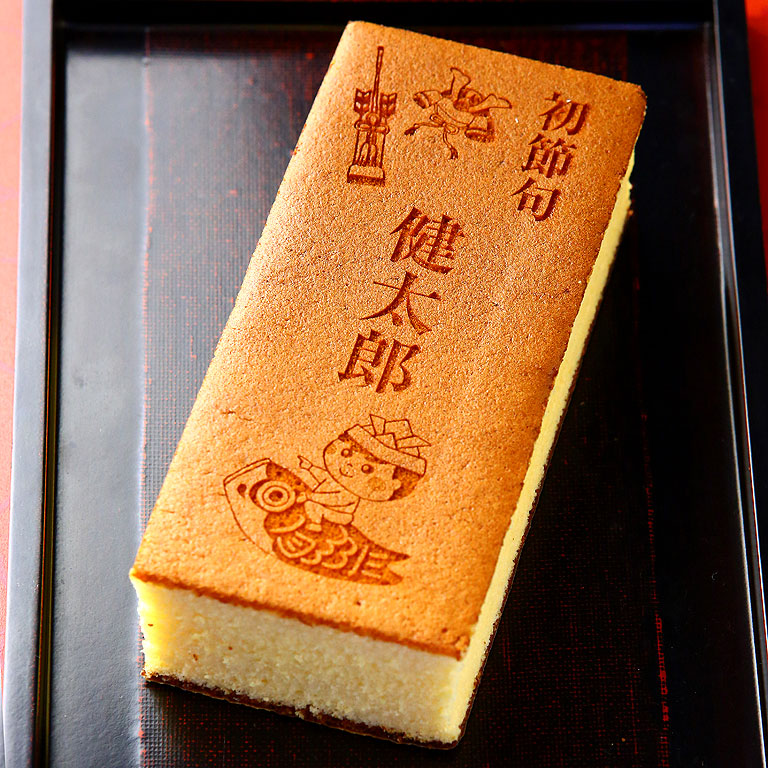 初節句
健太郎